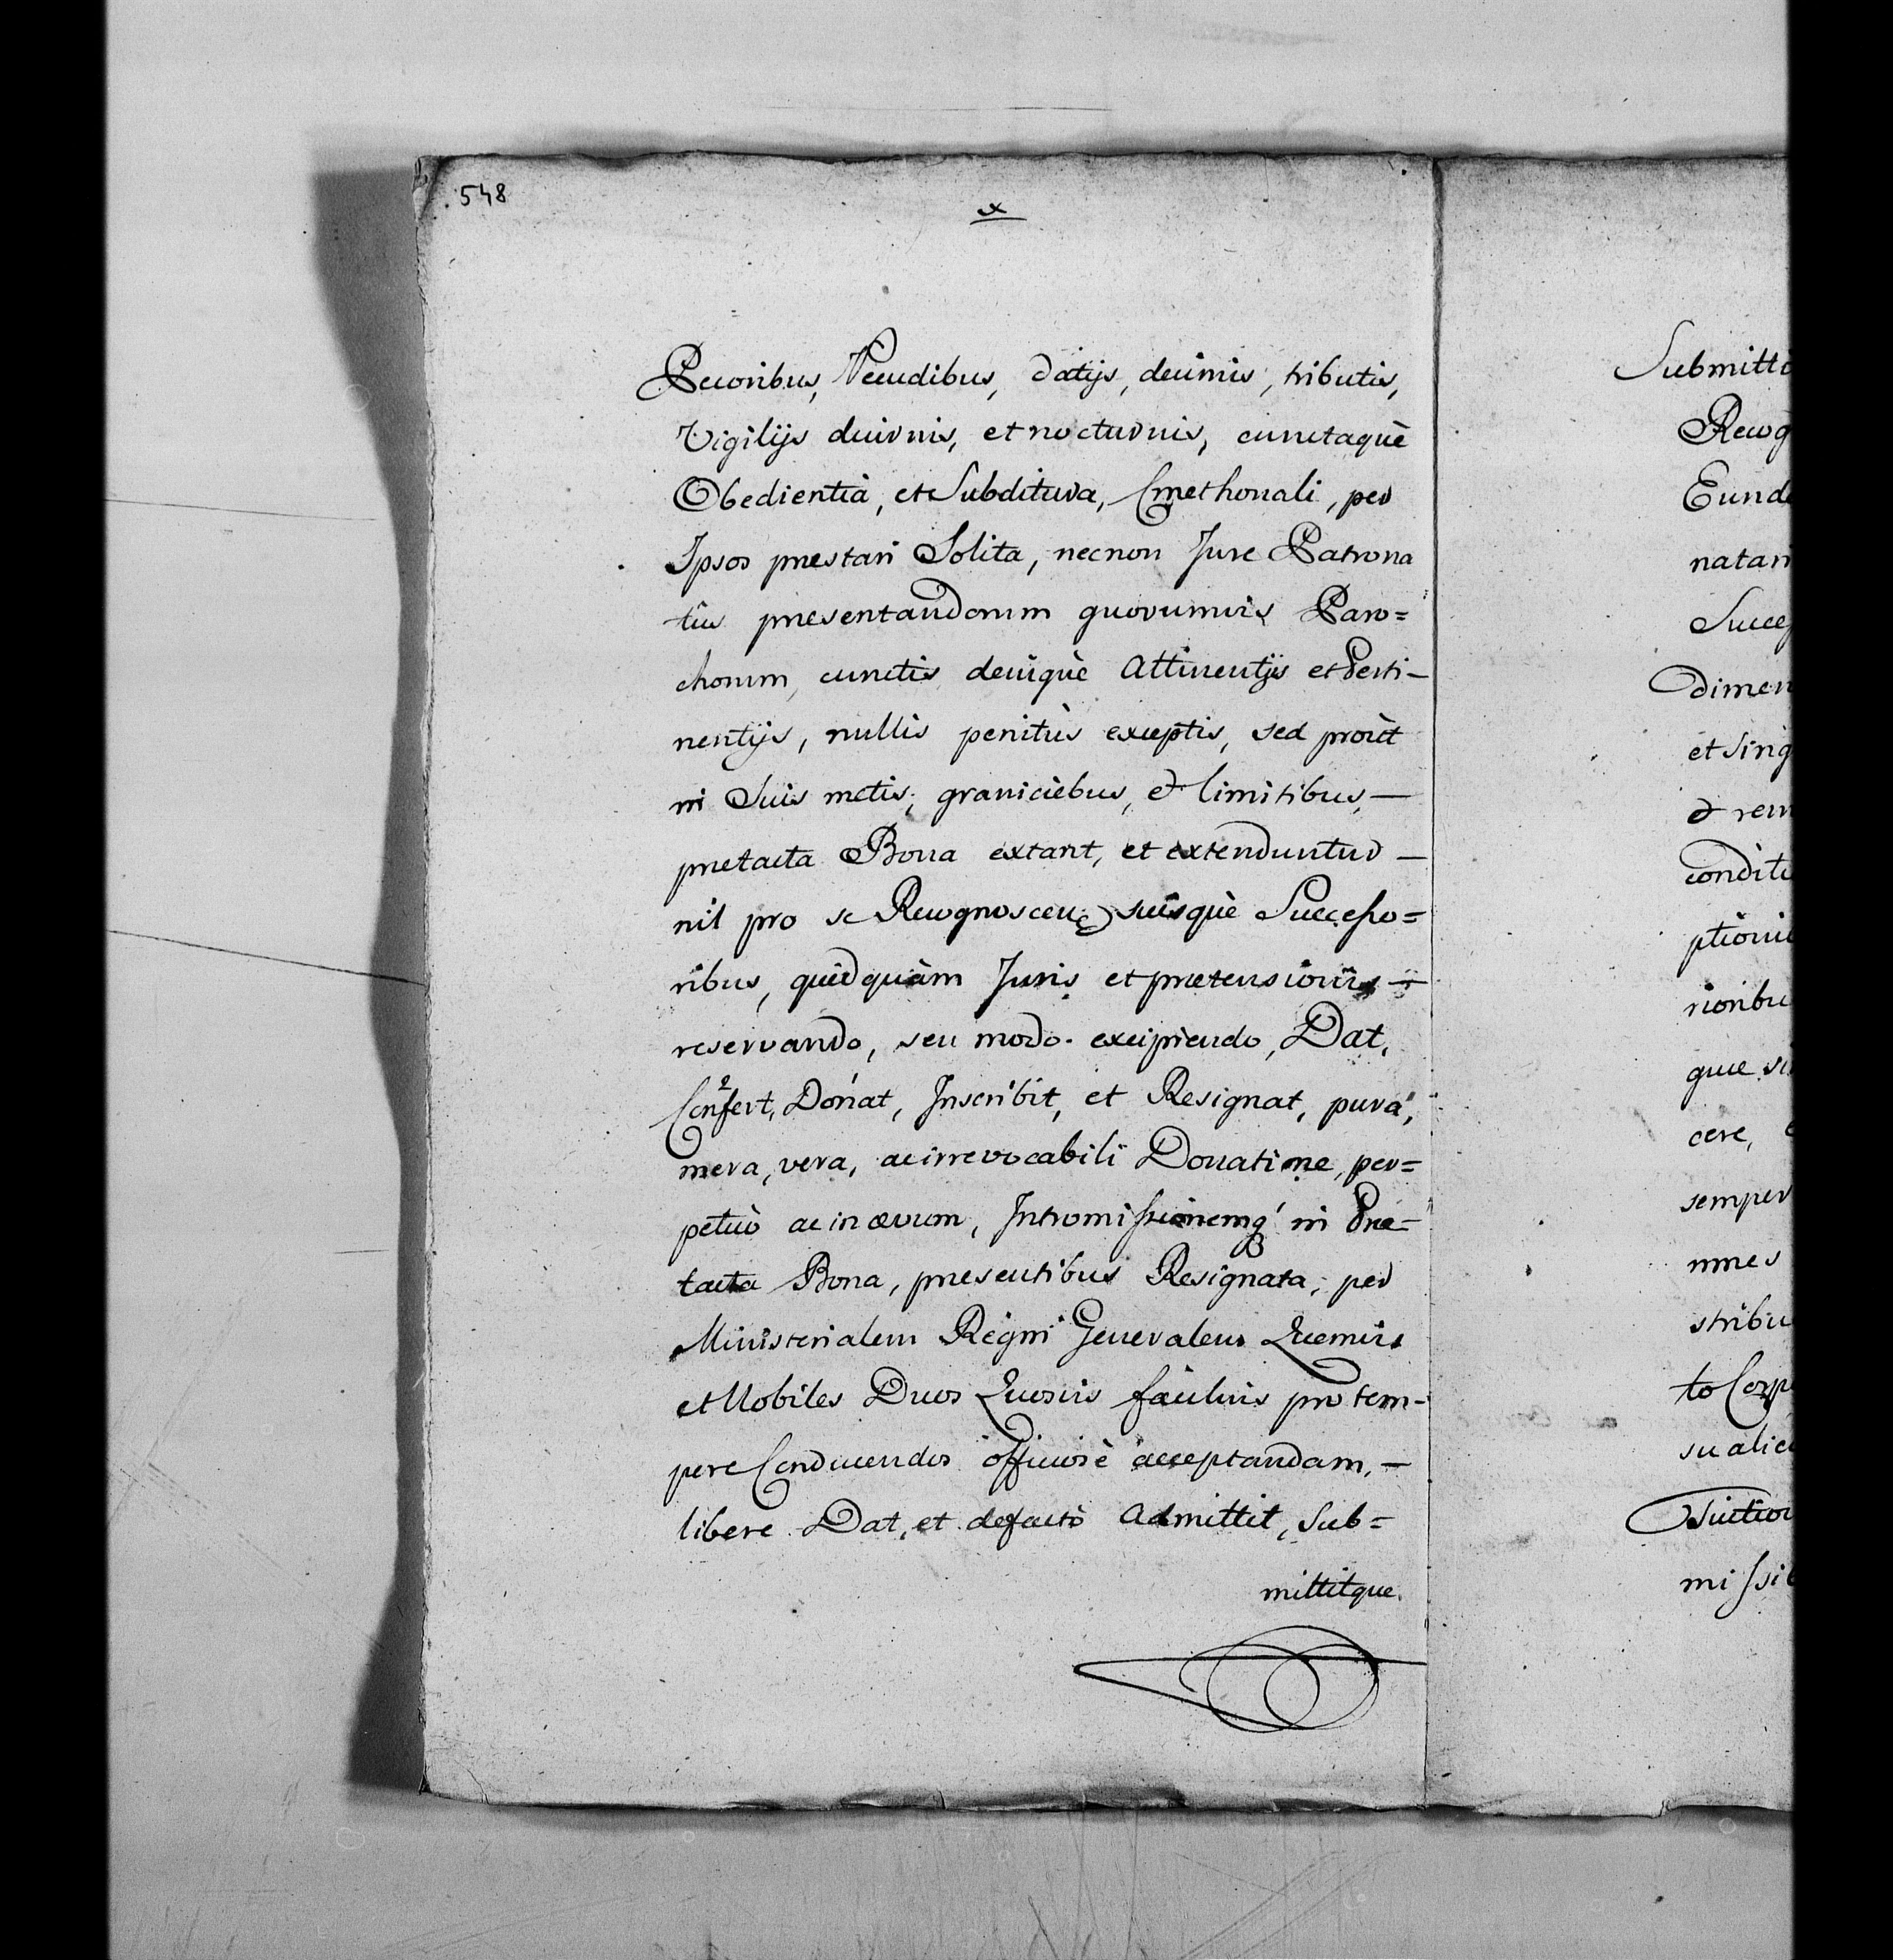 548
x
Pecoribus, Pecudibus, datijs, decimis, tributis,
Vigilijs duirnis, et nocturnis, cunctaquè
Obedientià, et Subditura, Cmethonali, per
Ipsos prestari Solita, necnon Jure Patrona
tûs presentandorum quorumvis Paro=
chorum, cunctis deniquè Attinentijs et Perti-
nentijs, nullis penitùs exceptis, sed proùt
in Suis metis, graniciebus, et limitibus, —
pretacta Bona extant, et extenduntur —
nil pro se Recognoscen suisquè Successo=
ribus, quidquàm Juris et pretensionis —
reservando, seu modo excipiendo, Dat,
Confert, Donat, Inscribit, et Resignat, purá,
mera, vera, ac irrevocabili Donatione, per=
petuò ac in ævum, Intromissionemq' in Præ-
tacta Bona, presentibus Resignata, per
Ministerialem Regni Generalem Quemvis
et Nobiles Duos Quosvis faciliùs pro tem-
pere Conducendos officiosè acceptandam, —
libere Dat, et defactò Admittit, Sub=
mittitque.
Submitti
Recog
Eund
natari
Succes
dimen
et Sing
et rem
condite
ptioni
rioribu
quæ si
cere,
semper
mnes
stribu
to Corp
su alic
missi